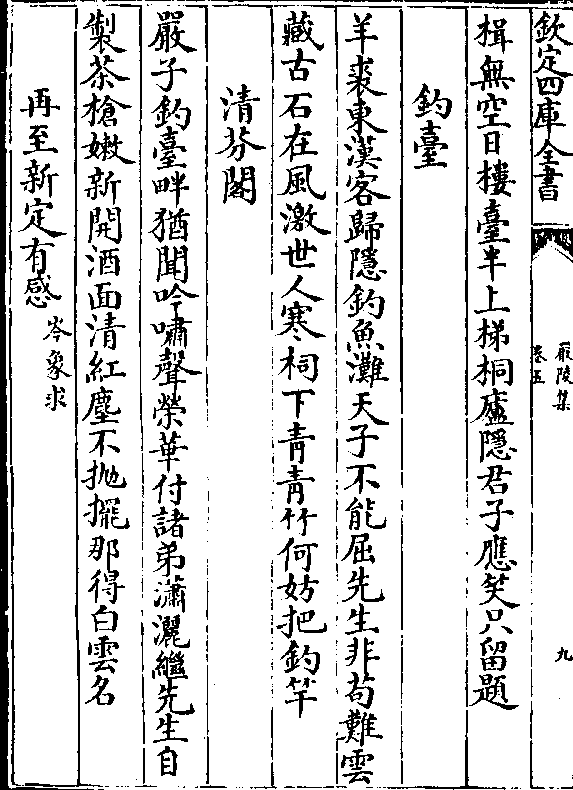 欽定四庫全書
嚴陵集
卷五
九
楫無空日樓臺半上梯桐廬隱君子應笑只留題
釣臺
羊裘東漢客歸隱釣魚灘天子不能屈先生非苟難雲
藏古石在風激世人寒祠下青青竹何妨把釣竿
清芬閣
嚴子釣臺畔猶聞吟嘯聲榮華付諸弟瀟灑繼先生自
製茶槍嫩新開酒面清紅塵不拋擺那得白雲名
再至新定有感
岑象求